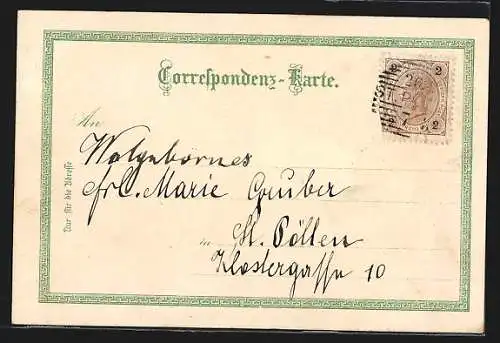 Correspondenz-Karte.
An
Wolgebornes
Frl. Marie Gruber
in St. Pölten
Klostergasse 10
Nur für die Adresse
2
2 2